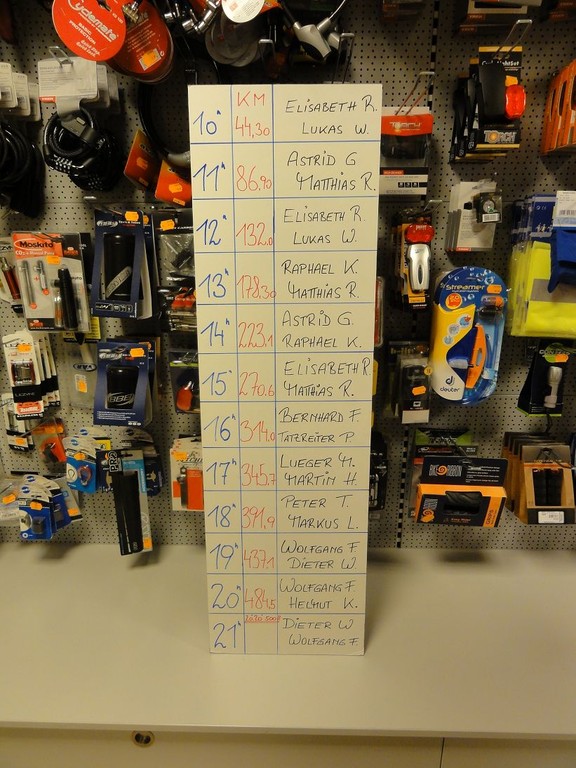 Cyclemate
KM
10h 44,30 ELISABETH R.
LUKAS W.
11h 86,90 ASTRID G
MATTHIAS R.
12h 132,0 ELISABETH R.
LUKAS W.
13h 178,30 RAPHAEL K.
MATHIAS R.
14h 223,1 ASTRID G.
RAPHAEL K.
15h 270,6 ELISABETH R.
MATHIAS R.
16h 314,0 BERNHARD F.
TATZREITER P
17h 345,7 LUEGER M.
MARTIN H.
18h 391,9 PETER T.
MARKUS L.
19h 437,1 WOLFGANG F.
DIETER W.
20h 484,5 WOLFGANG F.
HELMUT K.
21h DIETER W
WOLFGANG F.
Moskito
Streamer
deuter
BBB